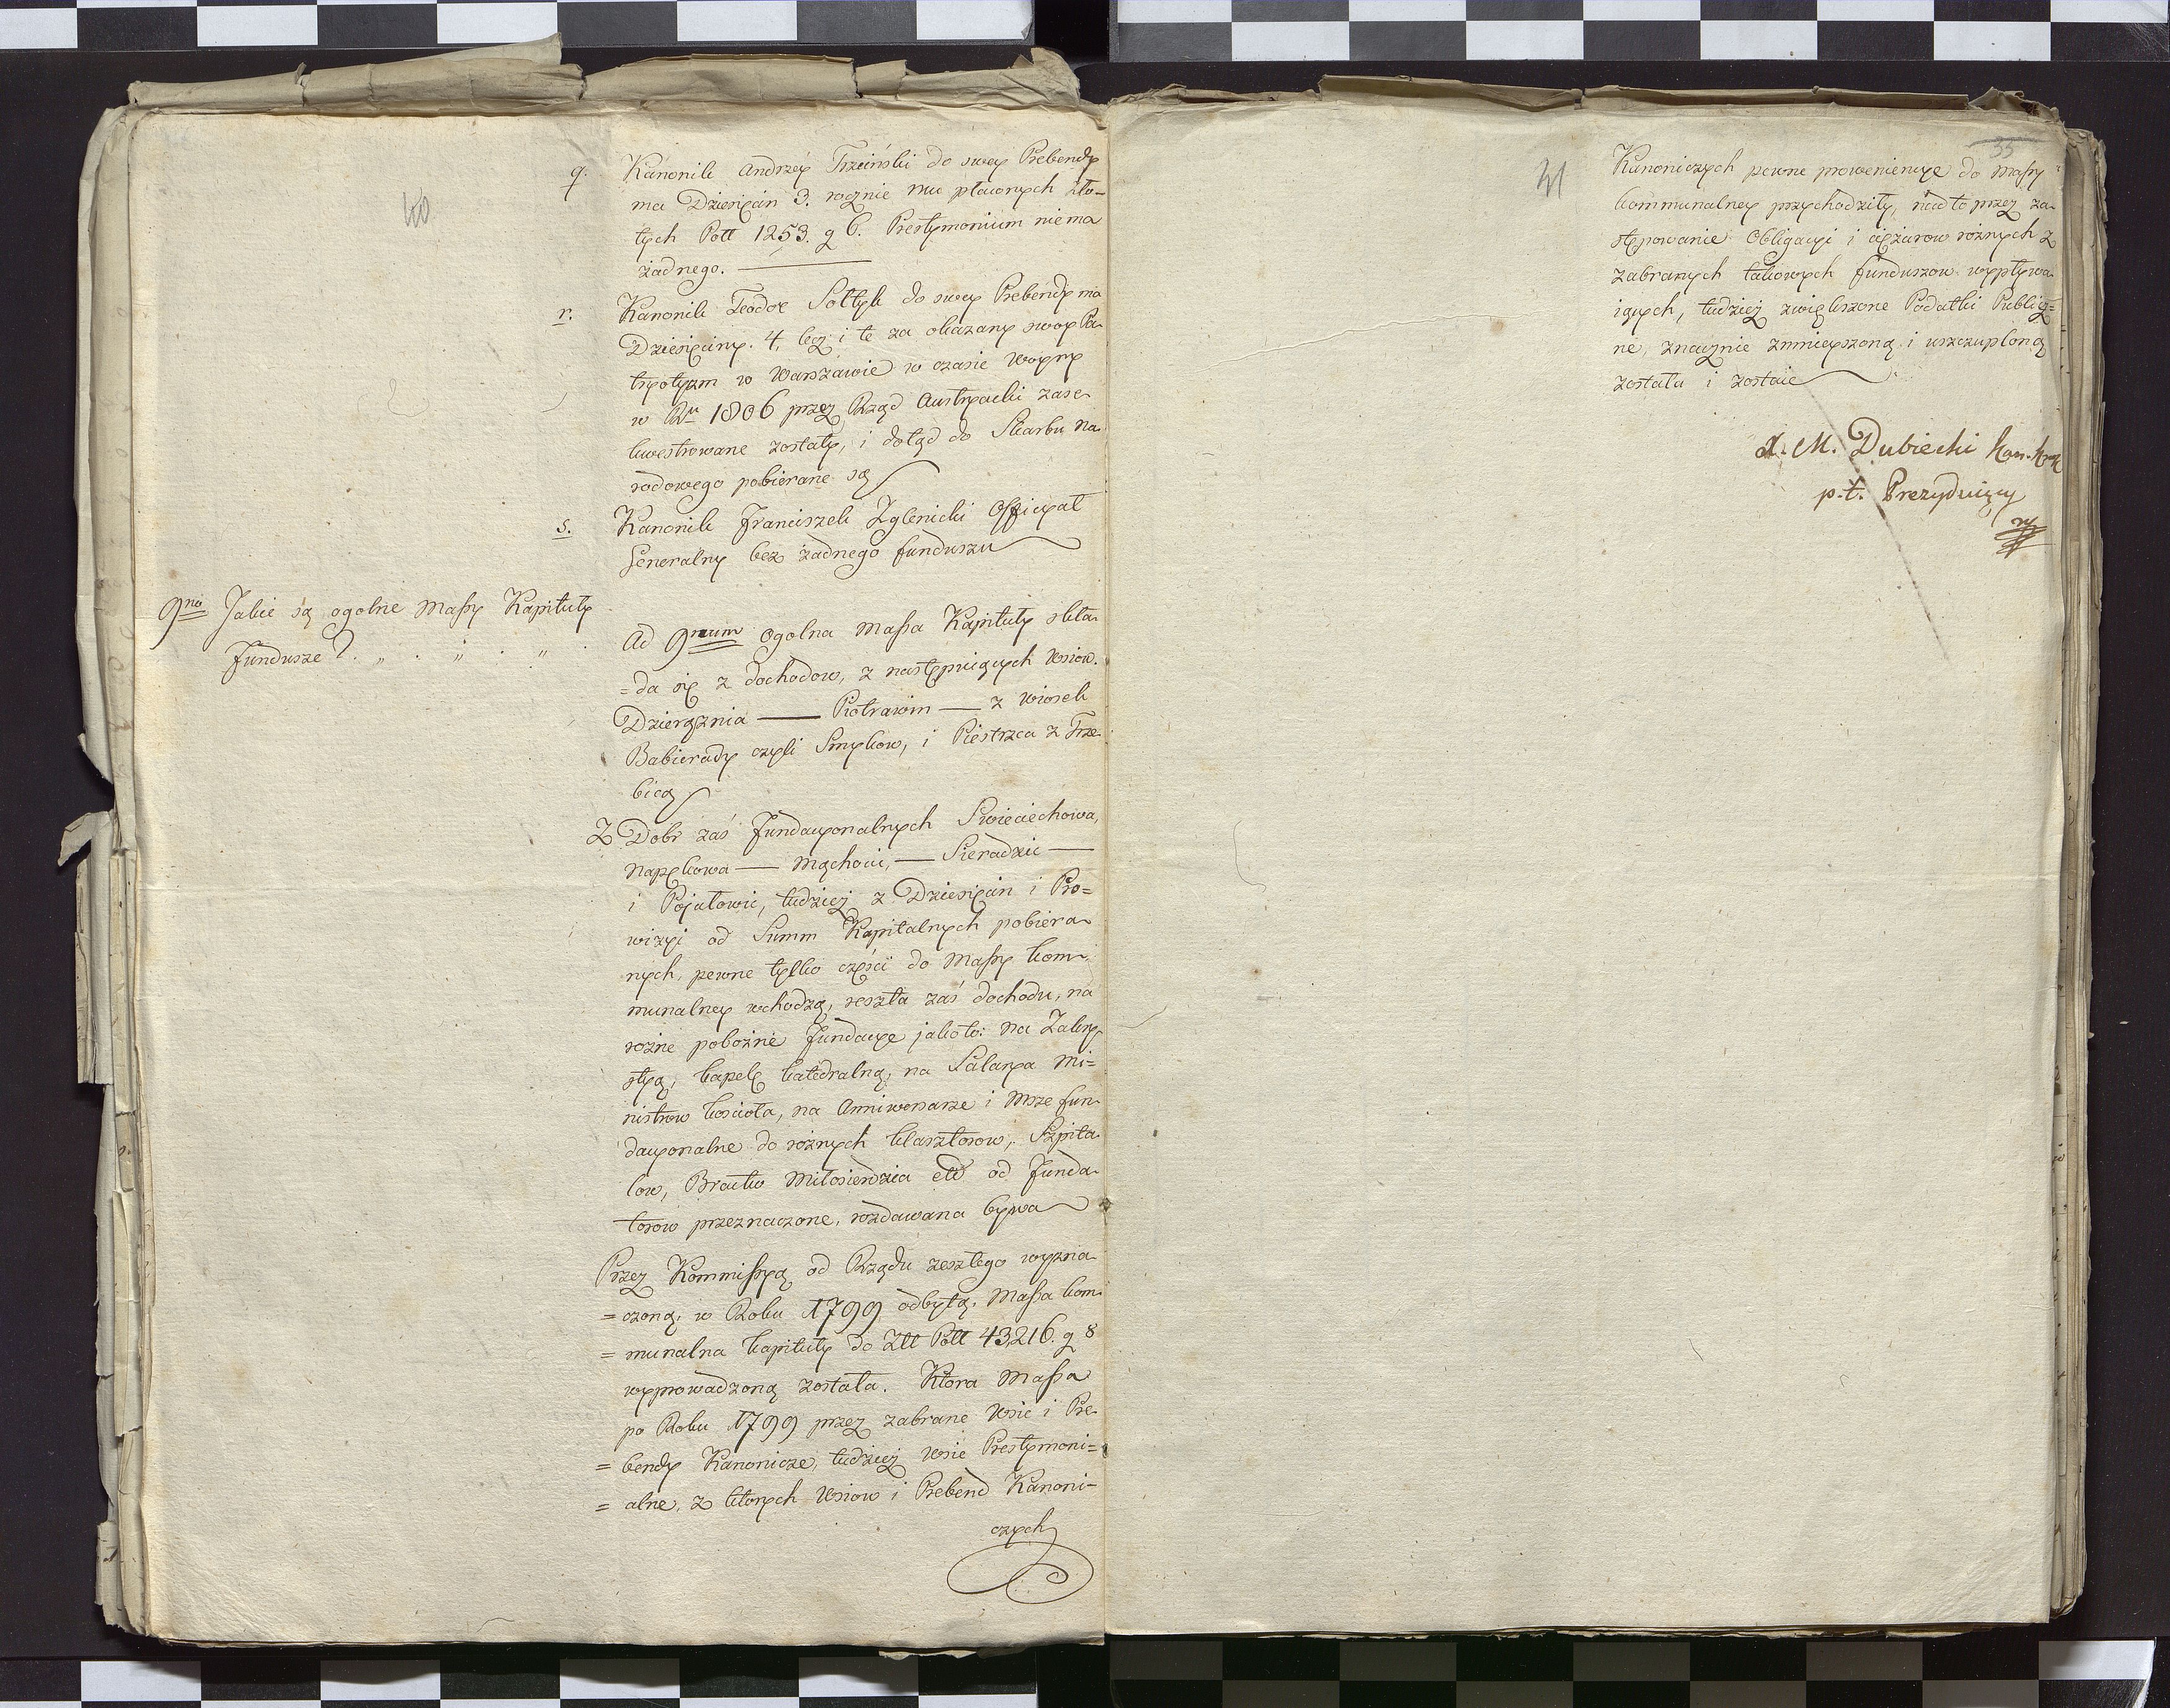 40
q. Kanonik Andrzey Trzciński do swey Prebendy
ma Dziesięcin 3. rocznie mu płaconych Zło-
tych Poll 1253. g 6. Prestymonium niema
żadnego.
r. Kanonik Teodor Sołtyk do swey Prebendy ma
Dziesięciny. 4, lecz i te za okazany swoy Pa-
tryotyzm w Warszawie w czasie Woyny
w Ru 1806 przez Rząd Austryacki zase-
kwestrowane zostały, i dotąd do Skarbu Na-
rodowego pobierane są
s. Kanonik Franciszek Zglenicki Officyał
Generalny bez żadnego funduszu
9no Jakie są ogolne Massy Kapituły
Fundusze?
Ad 9num Ogolna Massa Kapituły skła-
=da się z dochodow, z następuiących Wsiow.
Dzierążnia — Piotrawin — z Wiosek
Babierady czyli Smykow, i Piestrzca z Trze-
bicą
Z Dobr zaś Fundacyonalnych Swieciechowa,
Napękowa — Mąchocic, — Sieradzic —
i Pojałowic, tudzież z Dziesięcin i Pro=
wizyi od Summ Kapitalnych pobiera-
nych, pewne tylko części do Massy kom-
munalney wchodzą, reszta zaś dochodu, na
rożne pobożne Fundacye jakoto: na Zakry-
styą, kapelę katedralną, na Salarya Mi=
nistrow kościoła, na Anniwersarze i Msze fun-
dacyonalne do rożnych klasztorow, Szpita-
low, Bractw Miłosierdzia etc od Funda-
torow przeznaczone, rozdawana bywa
Przez Kommissyą od Rządu zeszłego wyzna-
=czoną, w Roku 1799 odbytą, Massa kom-
=munalna kapituły do Zll Poll 43,216. g 8
wyprowadzoną została. Ktora Massa
po Roku 1799 przez zabrane Wsie i Pre-
=bendy Kanonicze, tudzież Wsie Prestymoni=
=alne, z ktorych Wsiow i Prebend Kanoni-
czych
41
35
Kanoniczych pewne proweniencye do Massy
kommunalney przychodziły, nadto przez za-
stępowanie Obligacyi i ciężarow rożnych z
zabranych takowych funduszow wypływa-
iących, tudzież zwiększone Podatki Publicz=
ne, znacznie zmnieyszoną i uszczuploną
została i zostaie
X. M. Dubiecki Kan. Krak
p.t. Prezyduiący